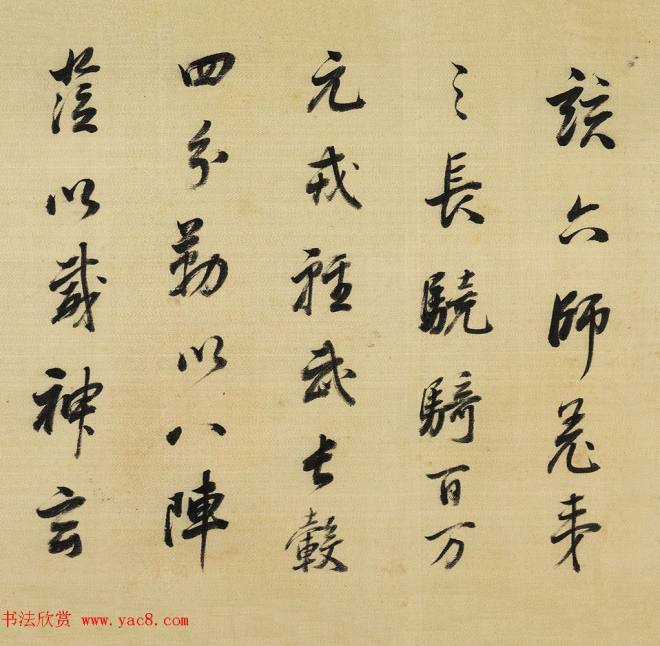 該六師羌夷
之長驍騎百万
元戎輕武長轂
四分勒以八陣
莅以威神玄
书法欣赏 www.yac8.com